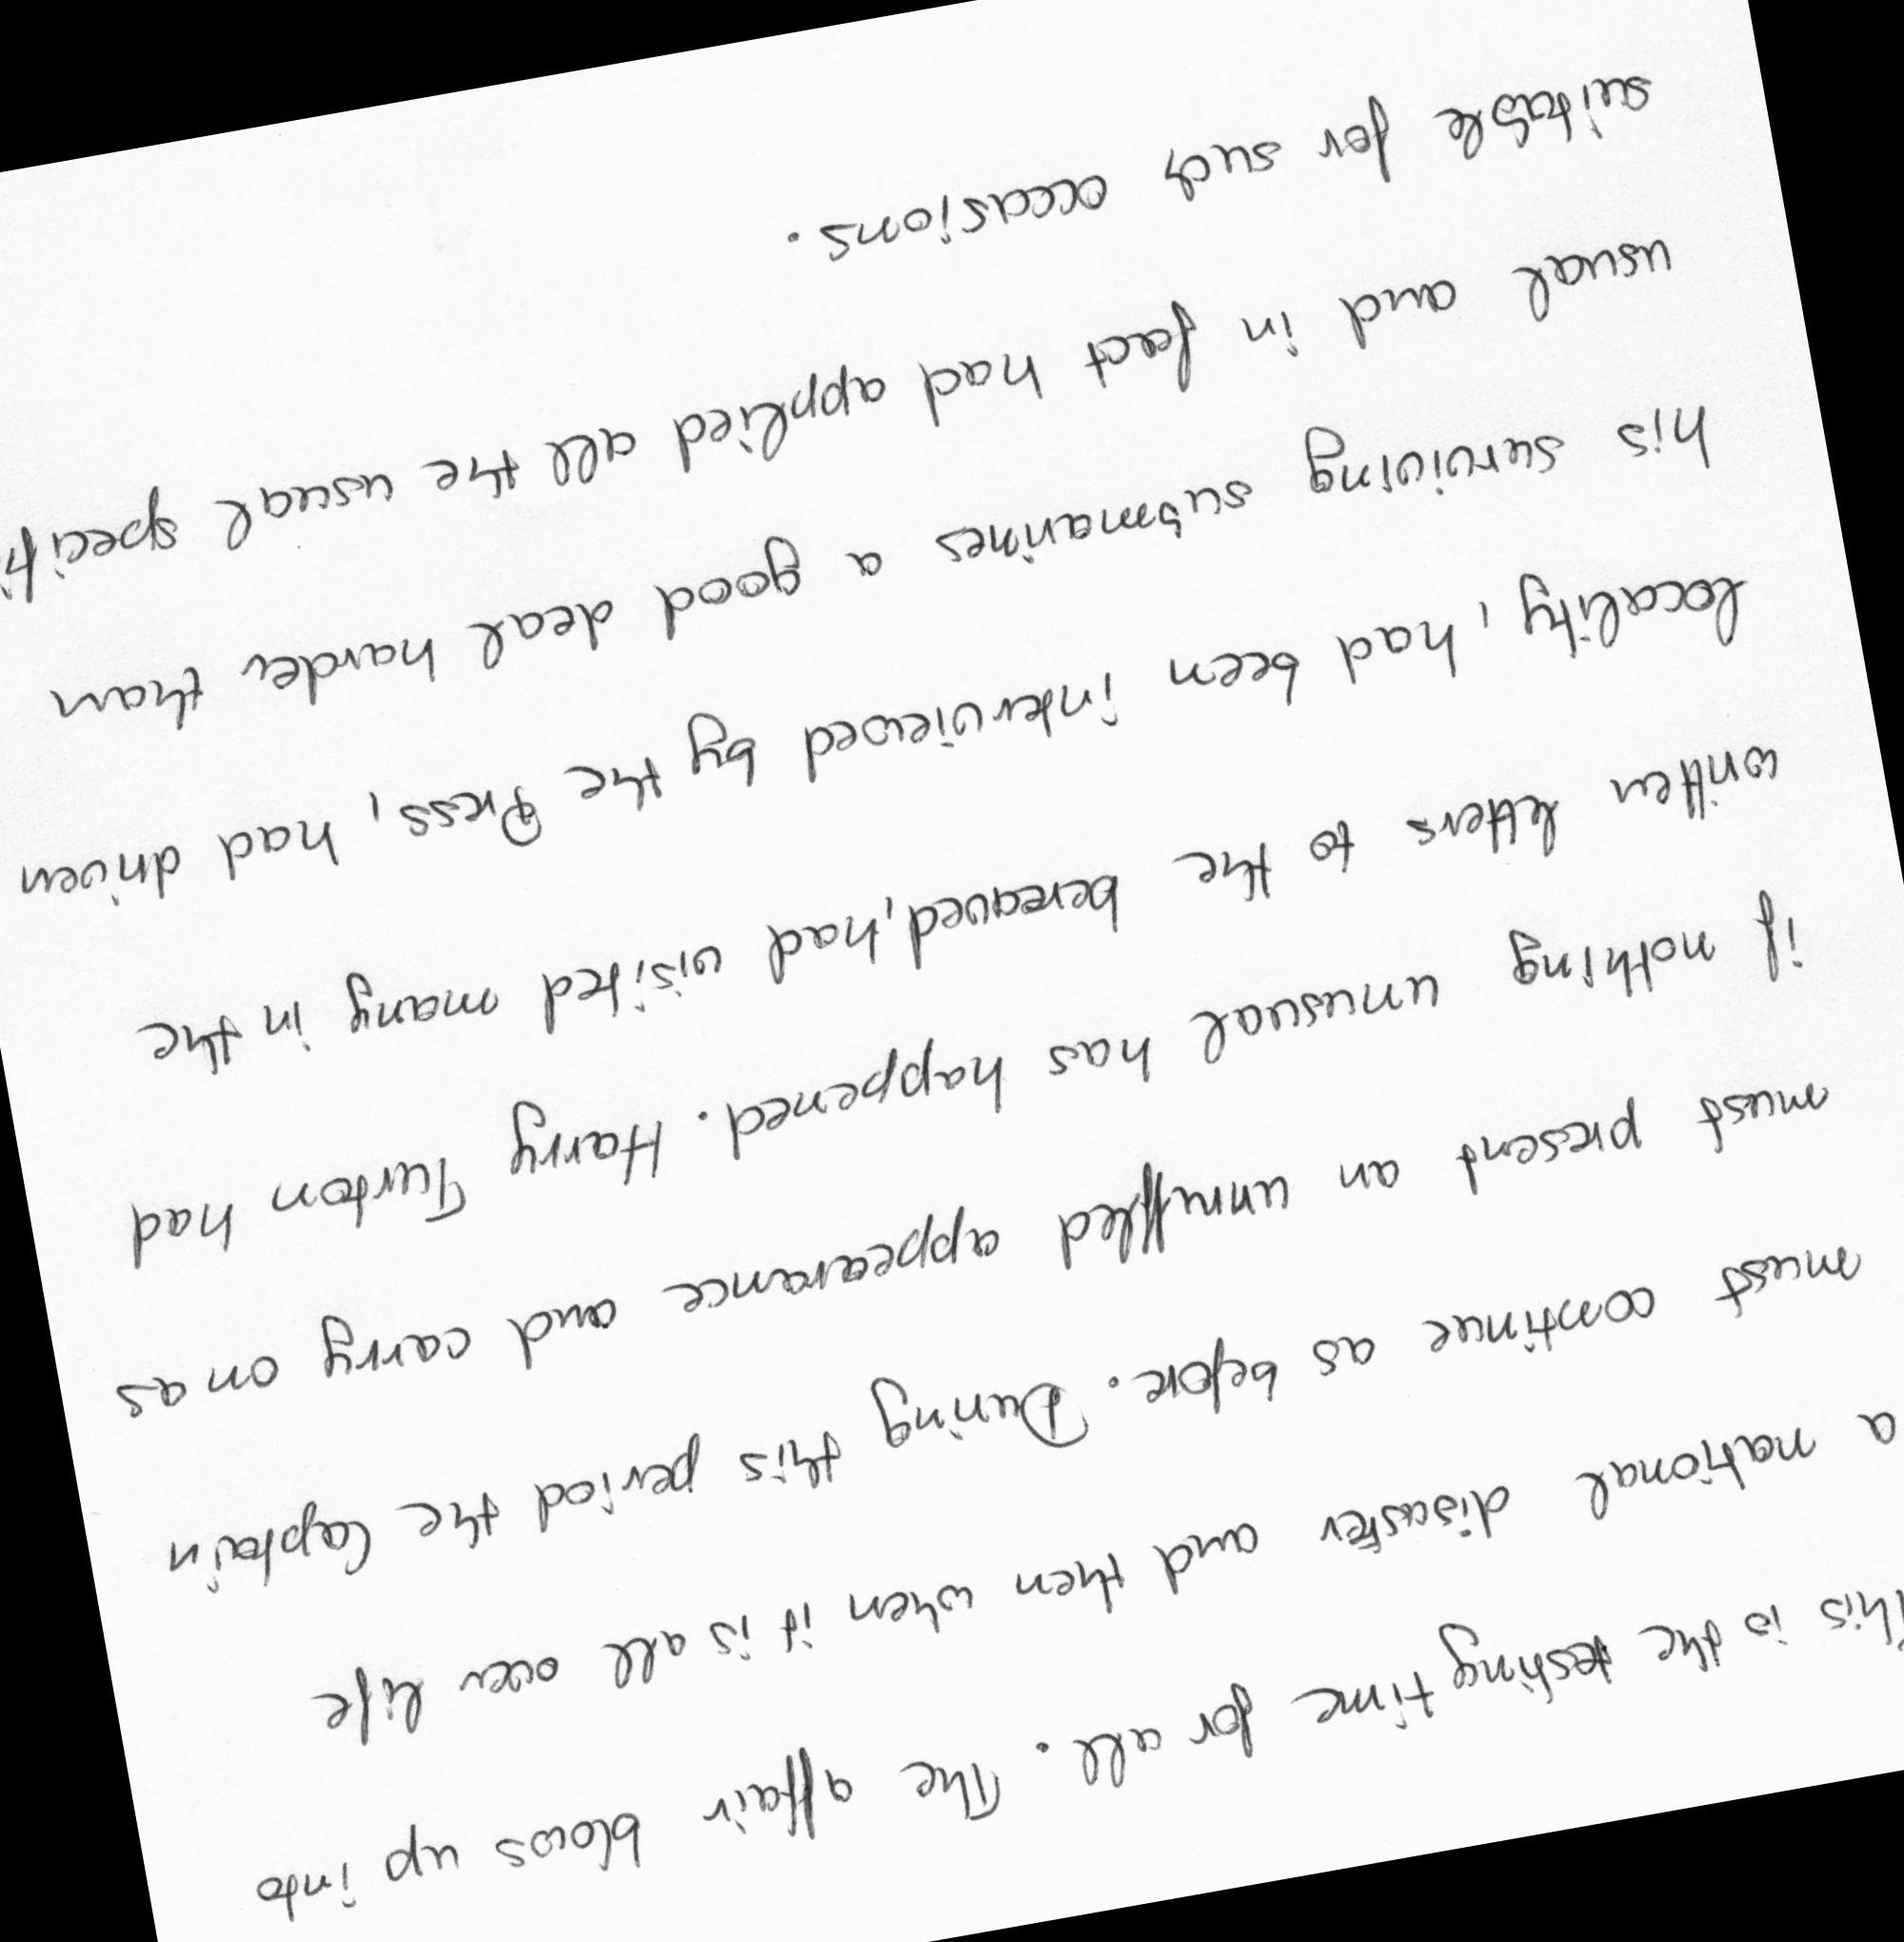 This is the testing time for all. The affair blows up into
a national disaster and then when it is all over life
must continue as before. During this period the Captain
must present an unruffled appearance and carry on as
if nothing unusual has happened. Harry Turton had
written letters to the bereaved, had visited many in the
locality, had been interviewed by the Press, had driven
his surviving submarines a good deal harder than
usual and in fact had applied all the usual
suitable for such occasions.